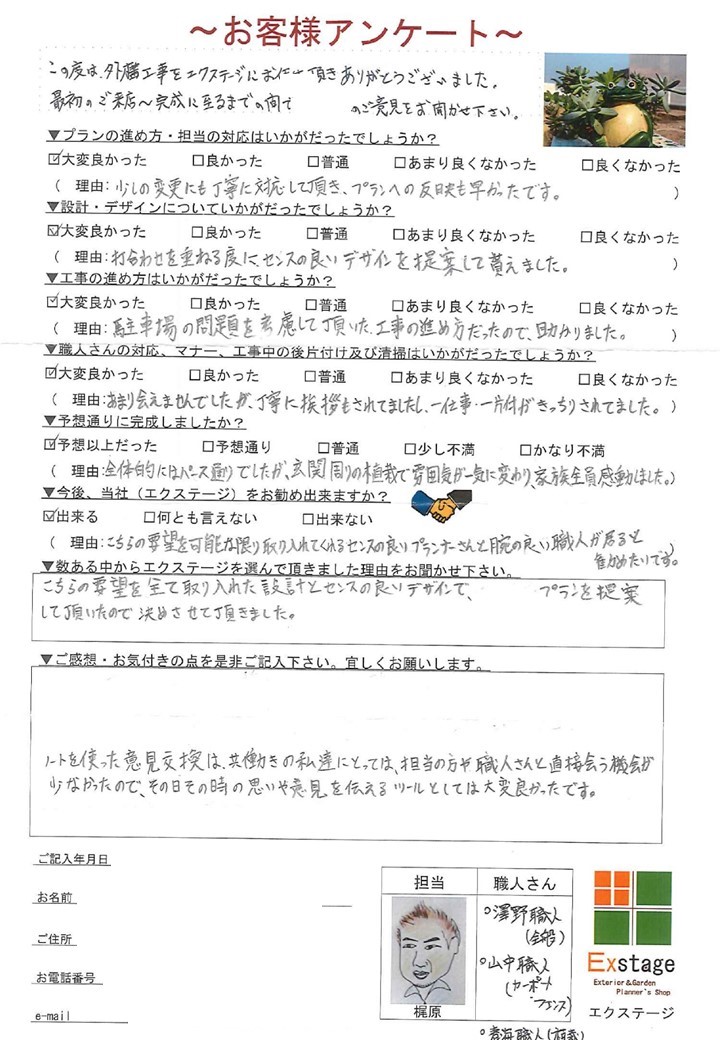 ～お客様アンケート～
この度は、外構工事をエクステージにお任せ頂きありがとうございました。
最初のご来店～完成に至るまでの間で のご意見をお聞かせ下さい。
▼プランの進め方・担当の対応はいかがだったでしょうか？
☑大変良かった □良かった □普通 □あまり良くなかった □良くなかった
（ 理由：少しの変更にも丁寧に対応して頂き、プランへの反映も早かったです。 ）
▼設計・デザインについていかがだったでしょうか？
☑大変良かった □良かった □普通 □あまり良くなかった □良くなかった
（ 理由：打合わせを重ねる度に、センスの良いデザインを提案して貰えました。 ）
▼工事の進め方はいかがだったでしょうか？
☑大変良かった □良かった □普通 □あまり良くなかった □良くなかった
（ 理由：駐車場の問題を考慮して頂いた、工事の進め方だったので、助かりました。 ）
▼職人さんの対応、マナー、工事中の後片付け及び清掃はいかがだったでしょうか？
☑大変良かった □良かった □普通 □あまり良くなかった □良くなかった
（ 理由：あまり会えませんでしたが、丁寧に挨拶もされてましたし、一仕事・一片付がきっちりされてました。 ）
▼予想通りに完成しましたか？
☑予想以上だった □予想通り □普通 □少し不満 □かなり不満
（ 理由：全体的にはパース通りでしたが、玄関周りの植栽で雰囲気が一気に変わり、家族全員感動しました。）
▼今後、当社（エクステージ）をお勧め出来ますか？
☑出来る □何とも言えない □出来ない
（ 理由：こちらの要望を可能な限り取り入れてくれるセンスの良いプランナーさんと腕の良い職人が居ると
勧めたいです。 ）
▼数ある中からエクステージを選んで頂きました理由をお聞かせ下さい。
こちらの要望を全て取り入れた設計とセンスの良いデザインで、 プランを提案
して頂いたので決めさせて頂きました。
▼ご感想・お気付きの点を是非ご記入下さい。宜しくお願いします。
ノートを使った意見交換は、共働きの私達にとっては、担当の方や職人さんと直接会う機会が
少なかったので、その日その時の思いや意見を伝えるツールとしては大変良かったです。
ご記入年月日
お名前
ご住所
お電話番号
e-mail
担当 職人さん
梶原
○澤野職人
(全般)
○山中職人
(カーポート
フェンス)
○青海職人(植栽)
Exstage
Exterior&Garden
Planner's Shop
エクステージ